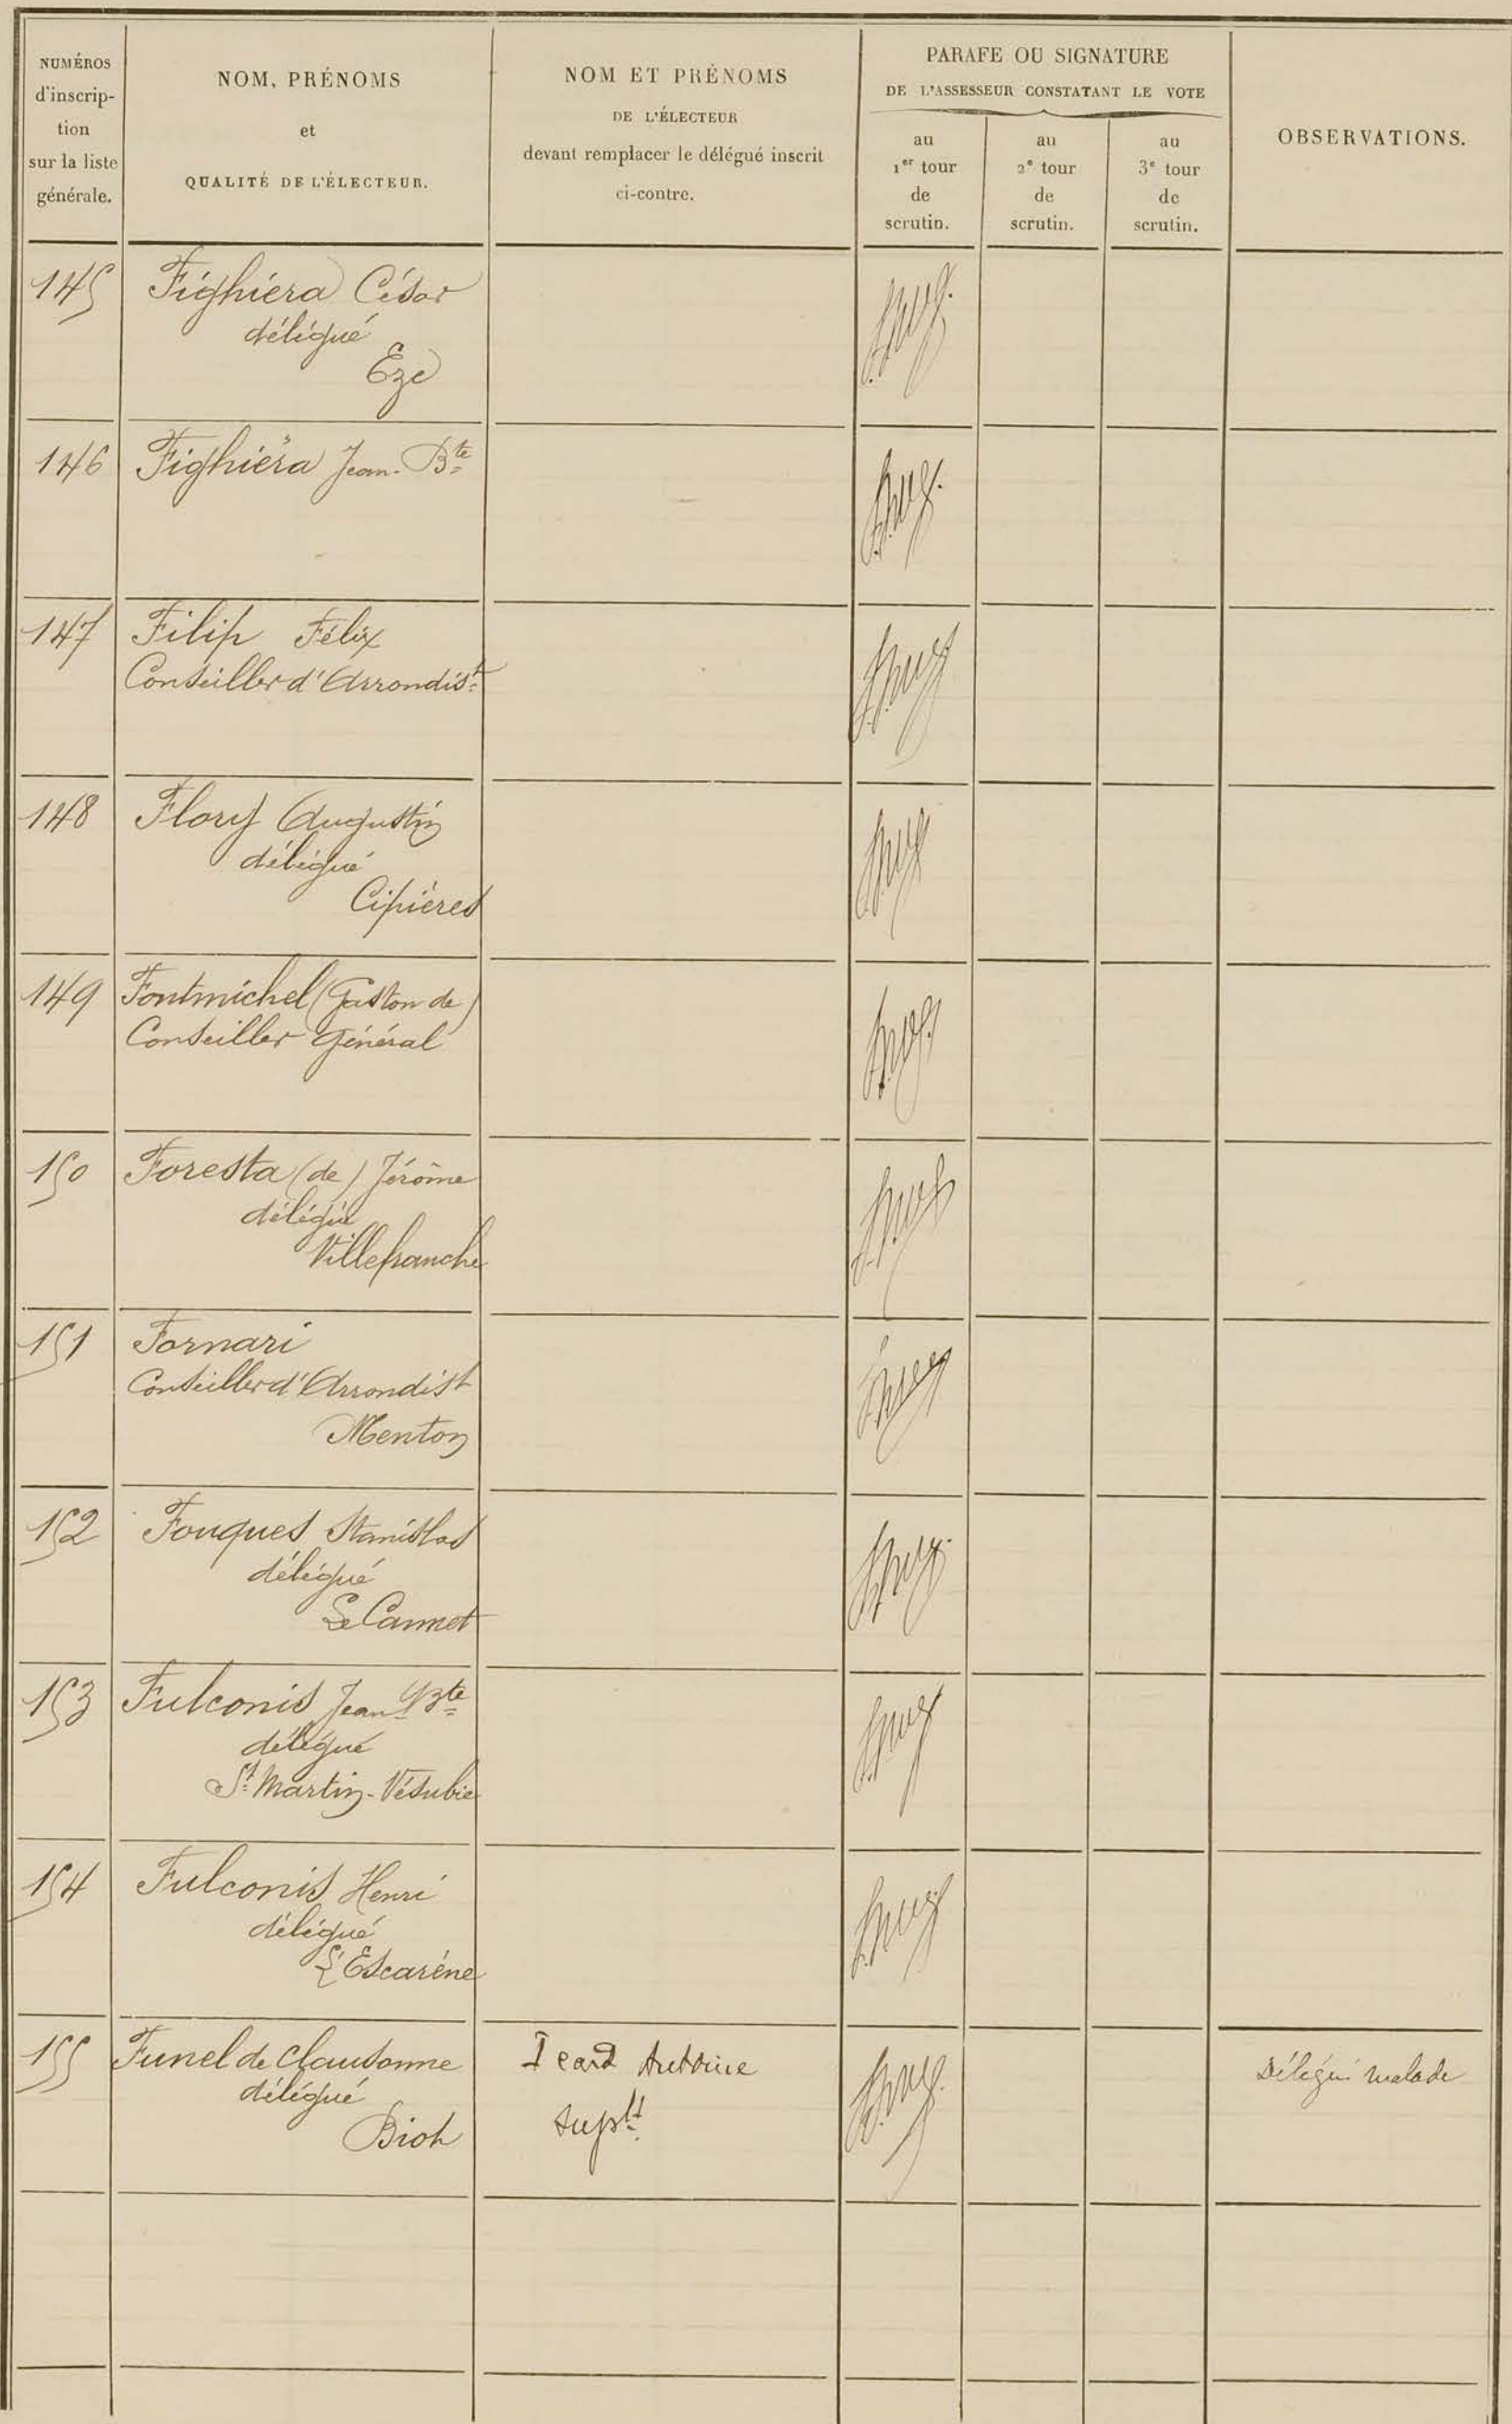 NUMÉROS
d'inscrip-
tion
sur la liste
générale.
NOM, PRÉNOMS
et
QUALITÉ DE L'ÉLECTEUR.
NOM ET PRÉNOMS
DE L'ÉLECTEUR
devant remplacer le délégué inscrit
ci-contre.
PARAFE OU SIGNATURE
DE L'ASSESSEUR CONSTATANT LE VOTE
au
1er tour
de
scrutin.
au
2e tour
de
scrutin.
au
3e tour
de
scrutin.
OBSERVATIONS.
145 Fighiéra César
délégué
Eze
146 Fighiéra Jean-Bte
147 Filip Félix
Conseiller d'Arrondist
148 Flory Augustin
délégué
Cipières
149 Fontmichel (Gaston de)
Conseiller Général
150 Foresta (de) Jérôme
délégué
Villefranche
151 Fornari
Conseiller d'Arrondist
Menton
152 Fouques Stanislas
délégué
Le Cannet
153 Fulconis Jean-Bte
délégué
St Martin-Vésubie
154 Fulconis Henri
délégué
L'Escarène
155 Funel de Clausonne Icard Antoine Délégué malade
délégué supplt
Biot